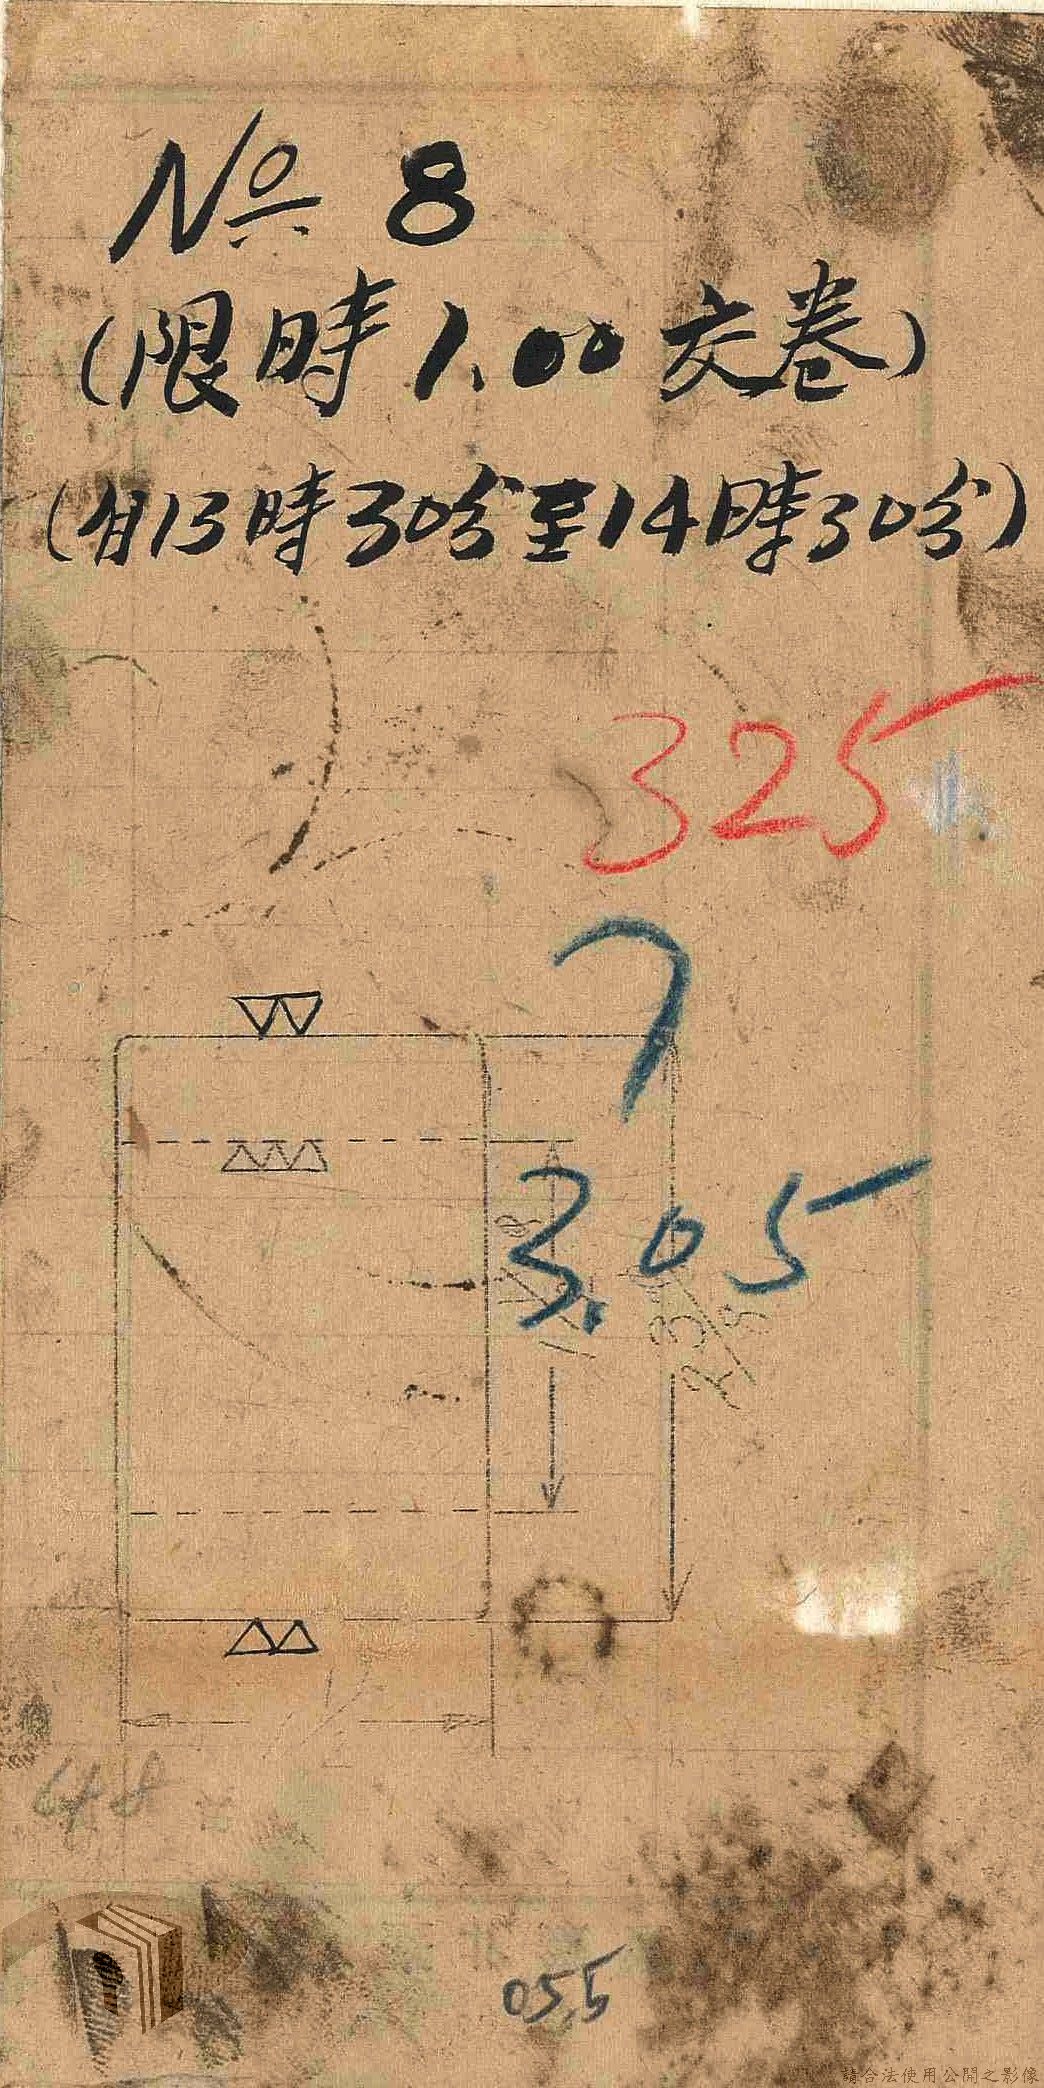 No 8
(限時1.00交卷)
(自13時30分至14時30分)
325
7
3.05
648
055
請合法使用公開之影像